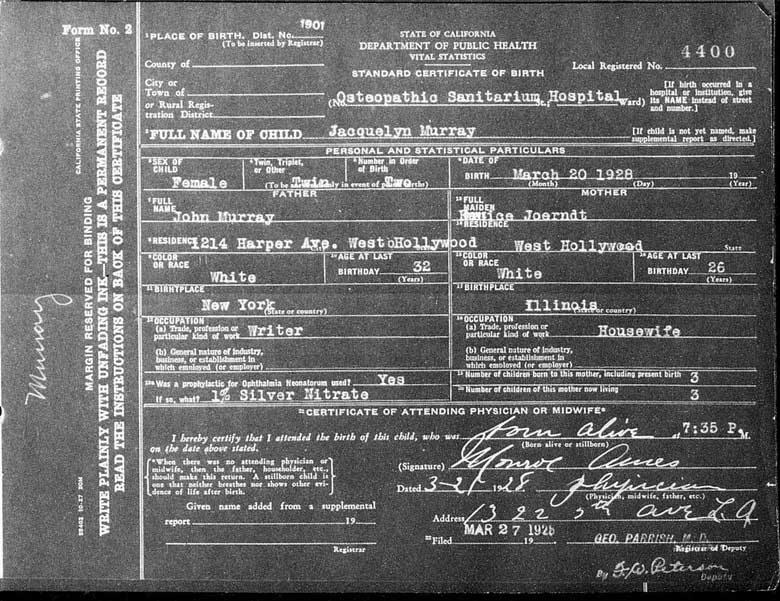 Form No. 2
1901
¹PLACE OF BIRTH. Dist. No.
(To be inserted by Registrar)
County of
City or
Town of
or Rural Regis-
tration District
STATE OF CALIFORNIA
DEPARTMENT OF PUBLIC HEALTH
VITAL STATISTICS
STANDARD CERTIFICATE OF BIRTH
Local Registered No. 4400
(No. Osteopathic Sanitarium St. Hospital Ward)
[If birth occurred in a
hospital or institution, give
its NAME instead of street
and number.]
²FULL NAME OF CHILD Jacquelyn Murray
[If child is not yet named, make
supplemental report as directed.]
PERSONAL AND STATISTICAL PARTICULARS
³SEX OF
CHILD
Female
⁴Twin, Triplet,
or Other
Twin
⁵Number in Order
of Birth
Two
(To be answered only in event of plural births)
⁶DATE OF
BIRTH March 20 1928 19
(Month) (Day) (Year)
FATHER
⁷FULL
NAME
John Murray
⁸RESIDENCE 1214 Harper Ave. West Hollywood
⁹COLOR
OR RACE
White
¹⁰AGE AT LAST
BIRTHDAY 32
(Years)
¹¹BIRTHPLACE
New York
(State or country)
¹²OCCUPATION
(a) Trade, profession or
particular kind of work Writer
(b) General nature of industry,
business, or establishment in
which employed (or employer)
MOTHER
¹³FULL
MAIDEN
Joerndt
¹⁴RESIDENCE
West Hollywood State
¹⁵COLOR
OR RACE
White
¹⁶AGE AT LAST
BIRTHDAY 26
(Years)
¹⁷BIRTHPLACE
Illinois
(State or country)
¹⁸OCCUPATION
(a) Trade, profession or
particular kind of work Housewife
(b) General nature of industry,
business, or establishment in
which employed (or employer)
Was a prophylactic for Ophthalmia Neonatorum used? Yes
If so, what? 1% Silver Nitrate
Number of children born to this mother, including present birth 3
Number of children of this mother now living 3
²¹CERTIFICATE OF ATTENDING PHYSICIAN OR MIDWIFE*
I hereby certify that I attended the birth of this child, who was born alive at 7:35 P. M.
on the date above stated.
(Born alive or stillborn)
*When there was no attending physician or
midwife, then the father, householder, etc.,
should make this return. A stillborn child is
one that neither breathes nor shows other evi-
dence of life after birth.
(Signature) Monroe
Dated 3-21 1928. physician
(Physician, midwife, father, etc.)
Given name added from a supplemental
report 19
Registrar
Address 1322 5th ave L A
²²Filed MAR 27 1928 19
GEO. PARRISH, M. D.
Registrar or Deputy
By G.W. Peterson
Deputy
CALIFORNIA STATE PRINTING OFFICE
MARGIN RESERVED FOR BINDING
WRITE PLAINLY WITH UNFADING INK—THIS IS A PERMANENT RECORD
READ THE INSTRUCTIONS ON BACK OF THIS CERTIFICATE
Murray